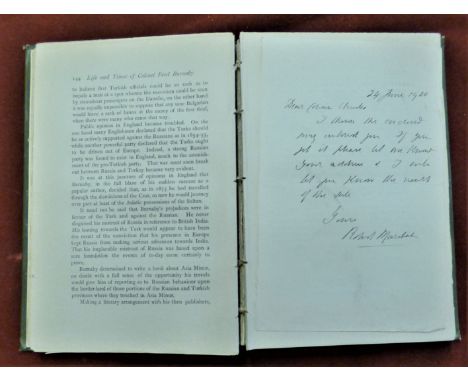 144 Life and Times of Colonel Fred Burnaby
to believe that Turkish officials could be so rash as to
impale a man at a spot whence the execution could be seen
by
passengers on the Danube, on the other hand
it was equally impossible to suppose that any sane Bulgarian
would leave a sack of beans at the mercy of the first thief,
when there were the river came that way.
Public opinion in England became troubled. On the
one hand many Englishmen declared that the Turks should
be as actively supported against the Russians as in 1854-55,
while another powerful party declared that the Turks ought
to be driven out of Europe. Indeed, a strong Russian
party was found to exist in England, much to the astonish-
ment of the pro-Turkish party. That war must soon break
out between Russia and Turkey became very evident.
It was at this juncture of opinions in England that
Burnaby, in the full blaze of his sudden success as a
popular author, decided that, as in 1875 he had travelled
through the dominions of the Czar, so now he would journey
over part at least of the Asiatic possessions of the Sultan.
It need not be said that Burnaby's prejudices were in
favour of the Turk and against the Russian. He never
disguised his mistrust of Russia in reference to British India.
His leaning towards the Turk would appear to have been
the result of the conviction that his presence in Europe
kept Russia from making serious advances towards India.
That his implacable mistrust of Russia was based upon a
sure foundation the events of to-day seem certainly to
prove.
Burnaby determined to write a book about Asia Minor,
no doubt with a full sense of the opportunity his travels
would give him of reporting as to Russian behaviour upon
the borderland of those portions of the Russian and Turkish
provinces where they touched in Asia Minor.
Making a literary arrangement with his then publishers,
24 June 1920
Dear
I have the
you. If you
get it please let me know
your address & I will
let you know the result
of the sale
Yours
Robert